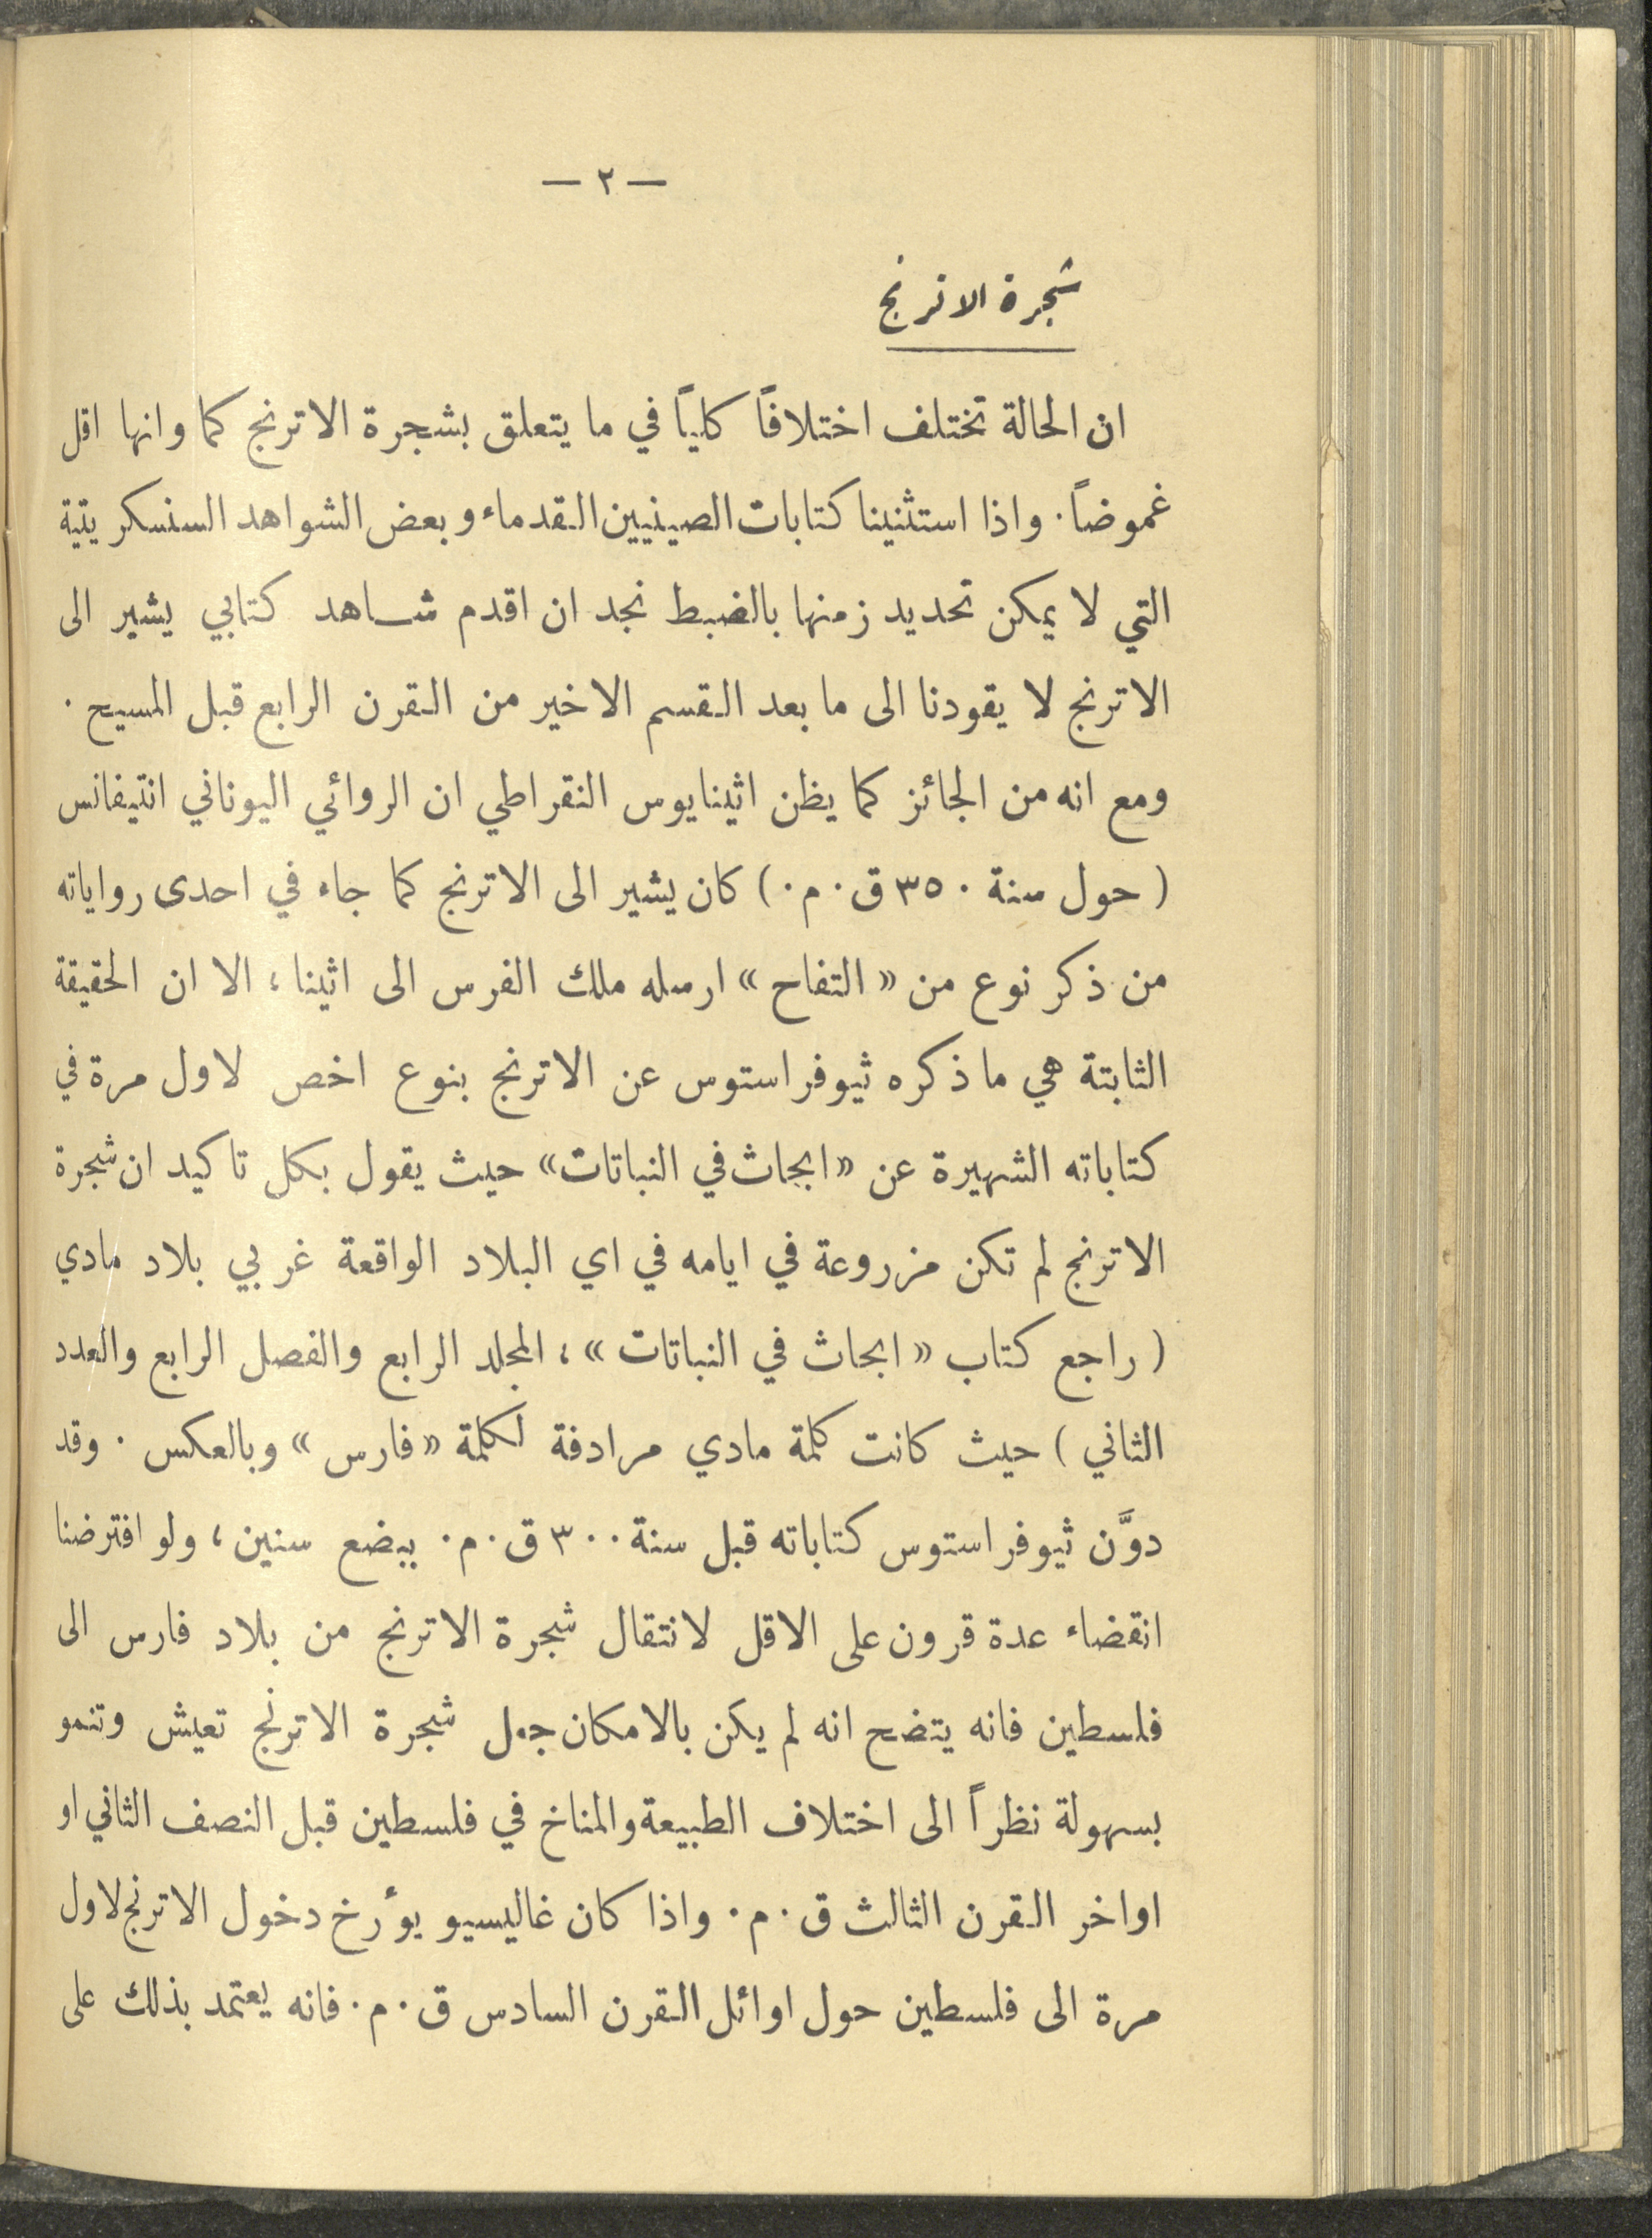 — ٢ —
شجرة الاترنج
ان الحالة تختلف اختلافاً كلياً في ما يتعلق بشجرة الاترنج كما وانها اقل
غموضاً. واذا استثنينا كتابات الصينيين القدماء وبعض الشواهد السنسكريتية
التي لا يمكن تحديد زمنها بالضبط نجد ان اقدم شاهد كتابي يشير الى
الاترنج لا يقودنا الى ما بعد القسم الاخير من القرن الرابع قبل المسيح.
ومع انه من الجائز كما يظن اثينايوس النقراطي ان الروائي اليوناني انتيفانس
( حول سنة ٣٥٠ ق. م. ) كان يشير الى الاترنج كما جاء في احدى رواياته
من ذكر نوع من « التفاح » ارسله ملك الفرس الى اثينا، الا ان الحقيقة
الثابتة هي ما ذكره ثيوفراستوس عن الاترنج بنوع اخص لاول مرة في
كتاباته الشهيرة عن « ابحاث في النباتات » حيث يقول بكل تاكيد ان شجرة
الاترنج لم تكن مزروعة في ايامه في اي البلاد الواقعة غربي بلاد مادي
( راجع كتاب « ابحاث في النباتات »، المجلد الرابع والفصل الرابع والعدد
الثاني ) حيث كانت كلمة مادي مرادفة لكلمة « فارس » وبالعكس. وقد
دوَّن ثيوفراستوس كتاباته قبل سنة ٣٠٠ ق. م. ببضع سنين، ولو افترضنا
انقضاء عدة قرون على الاقل لانتقال شجرة الاترنج من بلاد فارس الى
فلسطين فانه يتضح انه لم يكن بالامكان جعل شجرة الاترنج تعيش وتنمو
بسهولة نظراً الى اختلاف الطبيعة والمناخ في فلسطين قبل النصف الثاني او
اواخر القرن الثالث ق. م. واذا كان غاليسيو يؤرخ دخول الاترنج لاول
مرة الى فلسطين حول اوائل القرن السادس ق. م. فانه يعتمد بذلك على